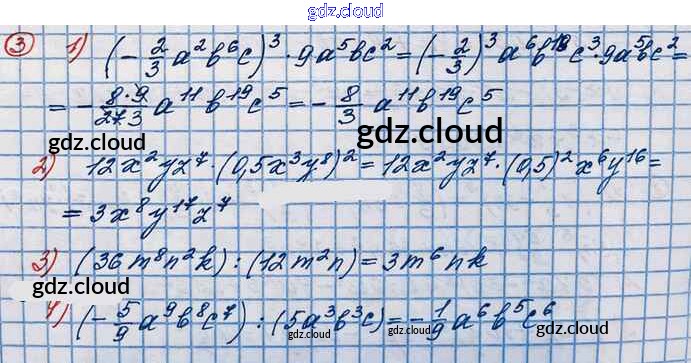 gdz.cloud
3 1) (-2/3 a²b⁶c)³ · 9a⁵bc² = (-2/3)³ a⁶b¹⁸c³ · 9a⁵bc² =
= - 8·9/27 3 a¹¹b¹⁹c⁵ = - 8/3 a¹¹b¹⁹c⁵
gdz.cloud gdz.cloud
2) 12x²yz⁷ · (0,5x³y⁸)² = 12x²yz⁷ · (0,5)² x⁶y¹⁶ =
gdz.cloud
= 3x⁸y¹⁷z⁷
3) (36m⁸n²k) : (12m²n) = 3m⁶nk
gdz.cloud
4) (-5/9 a⁹b⁸c⁷) : (5a³b³c) = - 1/9 a⁶b⁵c⁶
gdz.cloud gdz.cloud